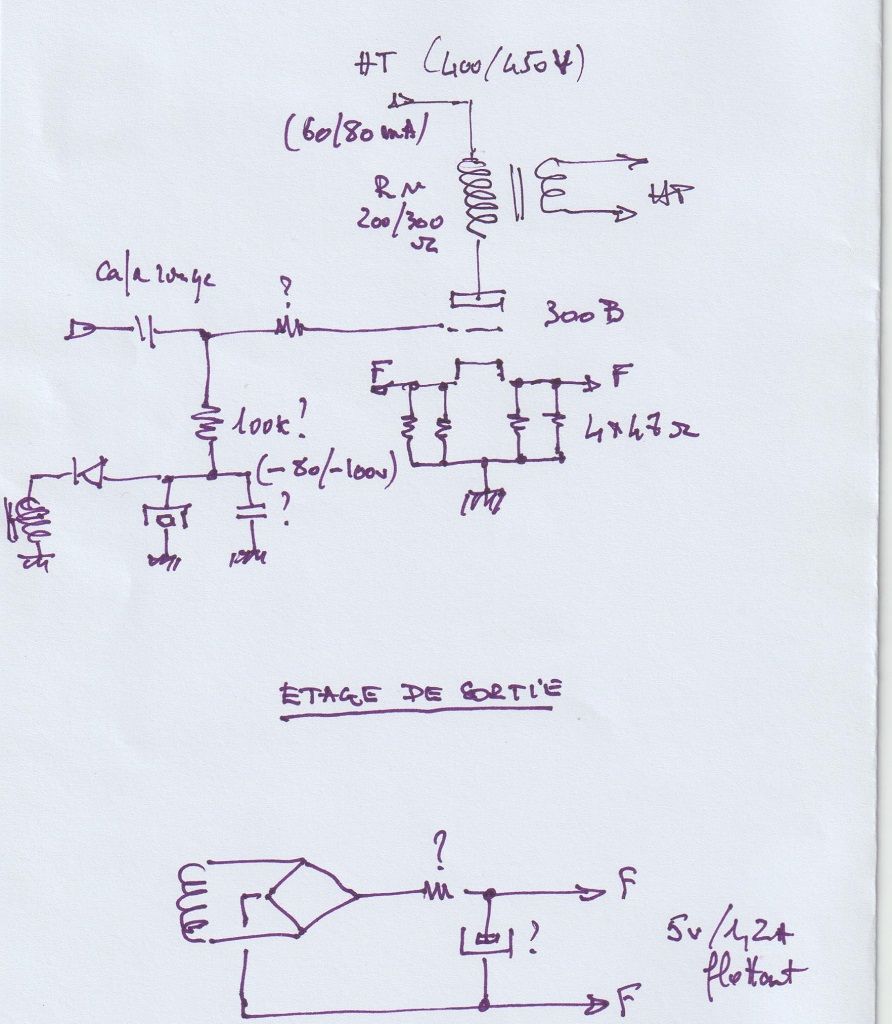 HT (400/450V)
(60/80mA)
R N
200/300
Ω
HP
?
300B
F
F
100k?
4×47Ω
(-80/-100v)
?
ETAGE DE SORTIE
?
F
5v/1,2A
?
flottant
F